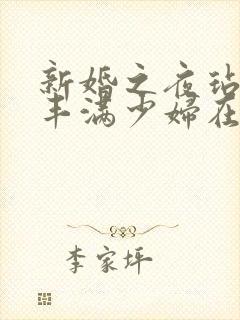 新婚之夜玷
丰满少婦在
李家坪